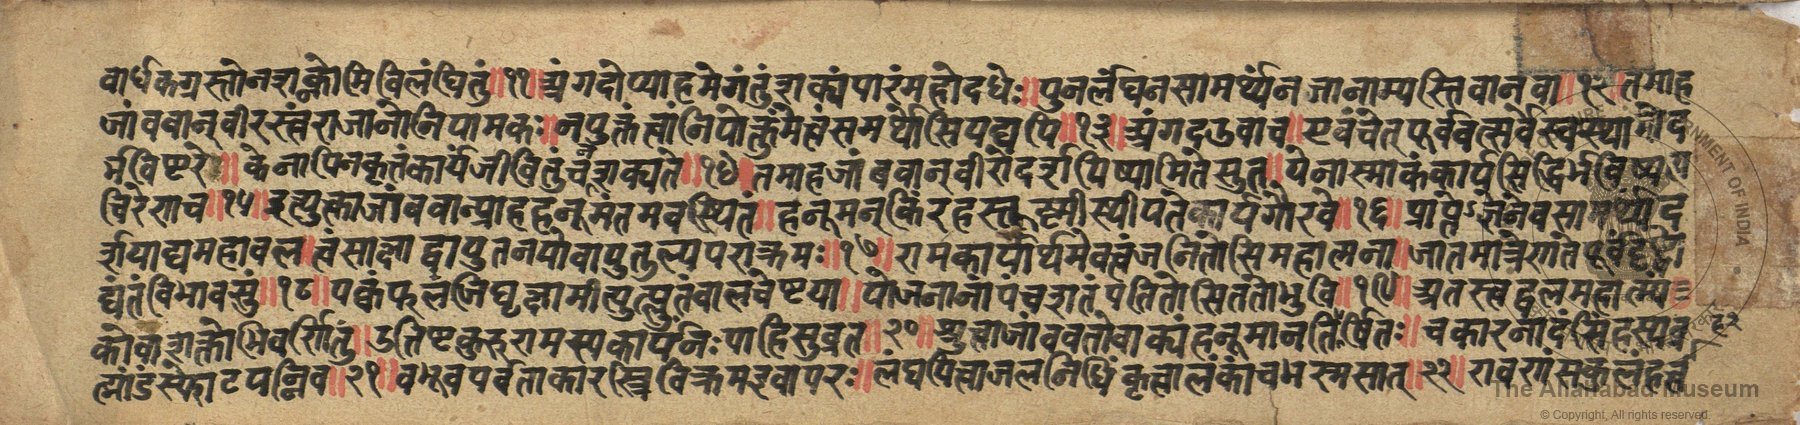 वार्धकग्रस्तोनशक्नोमिविलंघितुं॥११॥अंगदोप्याहमेगंतुंशक्यंपारंमहोदधेः॥पुनर्लंघनसामर्थ्यंनजानाम्यस्तिवानवा॥१२॥तमाह
जांबवान्वीरस्त्वंराजानोनियामकः॥नयुक्तंत्वांनियोक्तुंमेत्वंसमर्थोसियद्यपि॥१३॥अंगदउवाच॥एवंचेत्पूर्ववत्सर्वेस्वप्स्यामोद
र्भविष्टरे॥केनापिनकृतंकार्यंजीवितुंचनशक्यते॥१४॥तमाहजांबवान्वीरोदर्शयिष्यामितेसुत॥येनास्माकंकार्यसिद्धिर्भविष्यत्य
चिरेणच॥१५॥इत्युक्त्वाजांबवान्प्राहहनूमंतमवस्थितं॥हनूमन्किंरहस्तूष्णींस्थीयतेकार्यगौरवे॥१६॥प्राप्तेऽज्ञेनेवसामर्थ्यंद
र्शयाद्यमहाबल॥त्वंसाक्षाद्वायुतनयोवायुतुल्यपराक्रमः॥१७॥रामकार्यार्थमेवत्वंजनितोसिमहात्मना॥जातमात्रेणतेपूर्वंदृष्ट्वो
द्यंतंविभावसुं॥१८॥पक्वंफलंजिघृक्षामीत्युत्प्लुतंबालचेष्टया॥योजनानांपंचशतंपतितोसिततोभुवि॥१९॥अतस्त्वद्बलमहात्म्यं
कोवाशक्तोभिवर्णितुं॥उत्तिष्टकुरुरामस्यकार्यंनःपाहिसुव्रत॥२०॥श्रुत्वाजांबवतोवाक्यंहनूमानतिहर्षितः॥चकारनादंसिंहस्यब्र ६२
ह्मांडंस्फोटयन्निव॥२१॥बभूवपर्वताकारस्त्रिविक्रमइवापरः॥लंघयित्वाजलनिधिंकृत्वालंकांचभस्मसात्॥२२॥रावणंसकुलंहत्वा
The Allahabad Museum
© Copyright, All rights reserved.